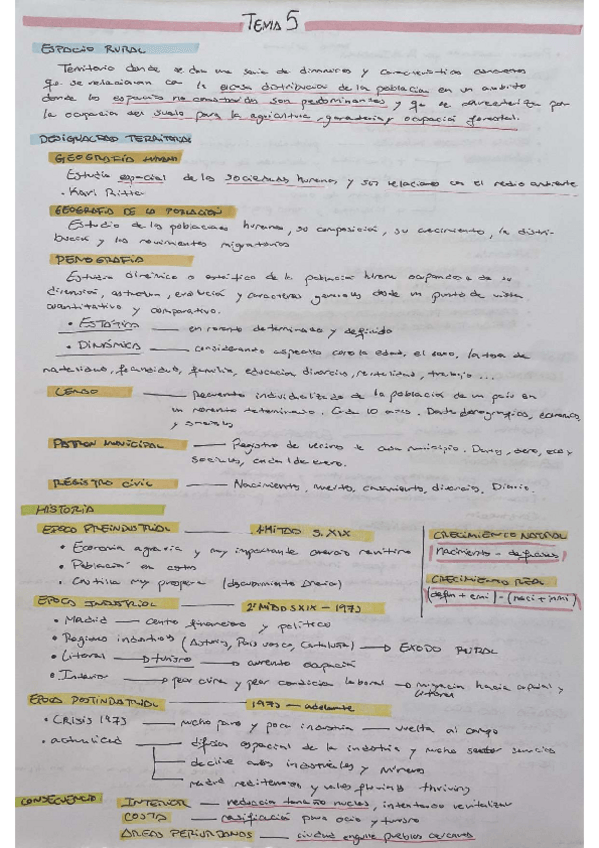 TEMA 5
ESPACIO RURAL
Territorio donde se dan una serie de dinámicas y características
que se relacionan con la escasa distribución de la población en un ámbito
donde los espacios no construidos son predominantes y que se caracteriza por
la ocupación del suelo para la agricultura, ganadería y ocupación forestal.
DESIGUALDAD TERRITORIAL
GEOGRAFÍA HUMANA
Estudia espacial de las sociedades humanas y sus relaciones con el medio ambiente
· Karl Ritter
GEOGRAFÍA DE LA POBLACIÓN
Estudio de las poblaciones humanas, su composición, su crecimiento, la distri-
bución y los movimientos migratorios
DEMOGRAFÍA
Estudio dinámico o estático de la población humana ocupándose de su
dimensión, estructura, evolución y caracteres generales desde un punto de vista
cuantitativo y comparativo.
• ESTÁTICA — en momento determinado y definido
• DINÁMICA — considerando aspectos como la edad, el sexo, la tasa de
natalidad, fecundidad, familia, educación, divorcios, mortalidad, trabajo ...
CENSO — Recuento individualizado de la población de un país en
un momento determinado. Cada 10 años. Datos demográficos, económicos
y sociales
PATRÓN MUNICIPAL — Registro de vecinos de cada municipio. Datos, sexo, eco y
sociales, cada 1 de enero.
REGISTRO CIVIL — Nacimiento, muerte, casamiento, divorcio, Diario.
HISTORIA
ÉPOCA PREINDUSTRIAL — 1 MITAD S. XIX
• Economía agraria y muy importante comercio marítimo
• Población en
• Castilla muy próspera (descubrimiento
CRECIMIENTO NATURAL
nacimiento - defunciones
CRECIMIENTO REAL
(defun + emi) - (naci + inmi)
ÉPOCA INDUSTRIAL — 2ª MITAD S XIX - 1973
• Madrid — centro financiero y político
• Regiones industriales (Asturias, País vasco, Cataluña) → ÉXODO RURAL
• Litoral → turismo → aumento ocupación
• Interior → peor clima y peor condición laboral → migración hacia capital y
litoral
ÉPOCA POSTINDUSTRIAL — 1973 - adelante
• CRISIS 1973 — mucho paro y poca industria — vuelta al campo
• actualidad — difusión espacial de la industria y mucho sector servicios
declive áreas industriales y mineras
madrid mediterráneo y valles fluviales thriving
CONSECUENCIA
INTERIOR — reducción tamaño núcleos, intentando revitalizar
COSTA — masificación para ocio y turismo
ÁREAS PERIURBANAS — ciudad engulle pueblos cercanos